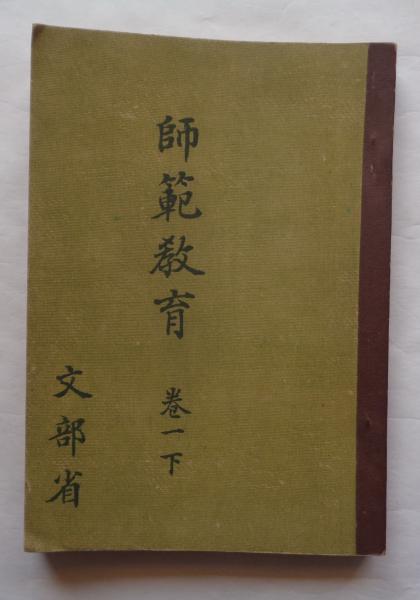 師範敎育 卷一下
文部省